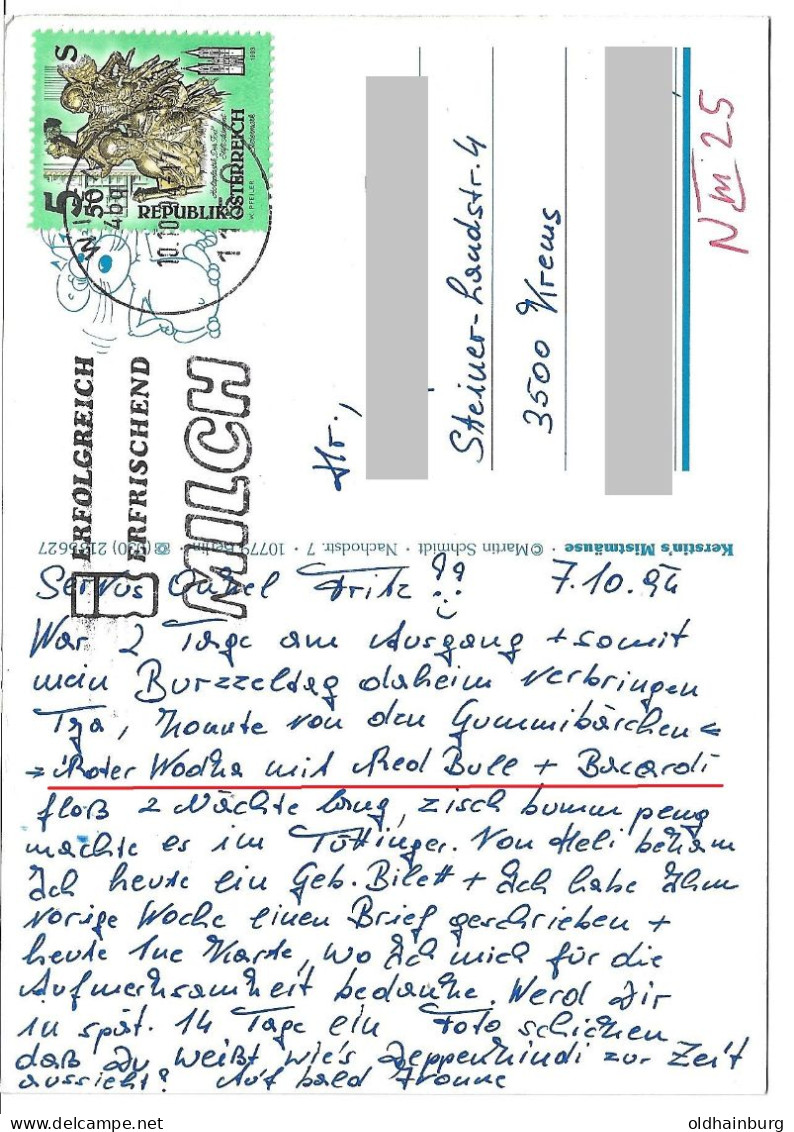 5 50 S
REPUBLIK ÖSTERREICH
W. PFEILER
1993
10.10.94-17
ERFOLGREICH
ERFRISCHEND
MILCH
Hr.,
Steiner-Landstr. 4
3500 Krems
N III 25
Kerstin's Mistmäuse · ©Martin Schmidt · Nachodstr. 7 · 10779 Berlin · (030) 2185627
Servus Onkel Fritz!! 7.10.94
War 2 Tage am Ausgang + somit
mein Burzzeltag daheim verbringen
Tja, konnte von den Gummibärchen =
= Roter Wodka mit Red Bull + Bacardi
floß 2 Nächte lang, zisch bumm peng
machte es im Tüttinger. Von Heli bekam
Ich heute ein Geb. Bilett + Ich habe Ihm
vorige Woche einen Brief geschrieben +
heute 1ne Karte, wo Ich mich für die
Aufmerksamheit bedanke. Werd Dir
in spät. 14 Tage ein Foto schicken
daß Du weißt wie's Deppenkindi zur Zeit
aussieht? Auf bald
oldhainburg